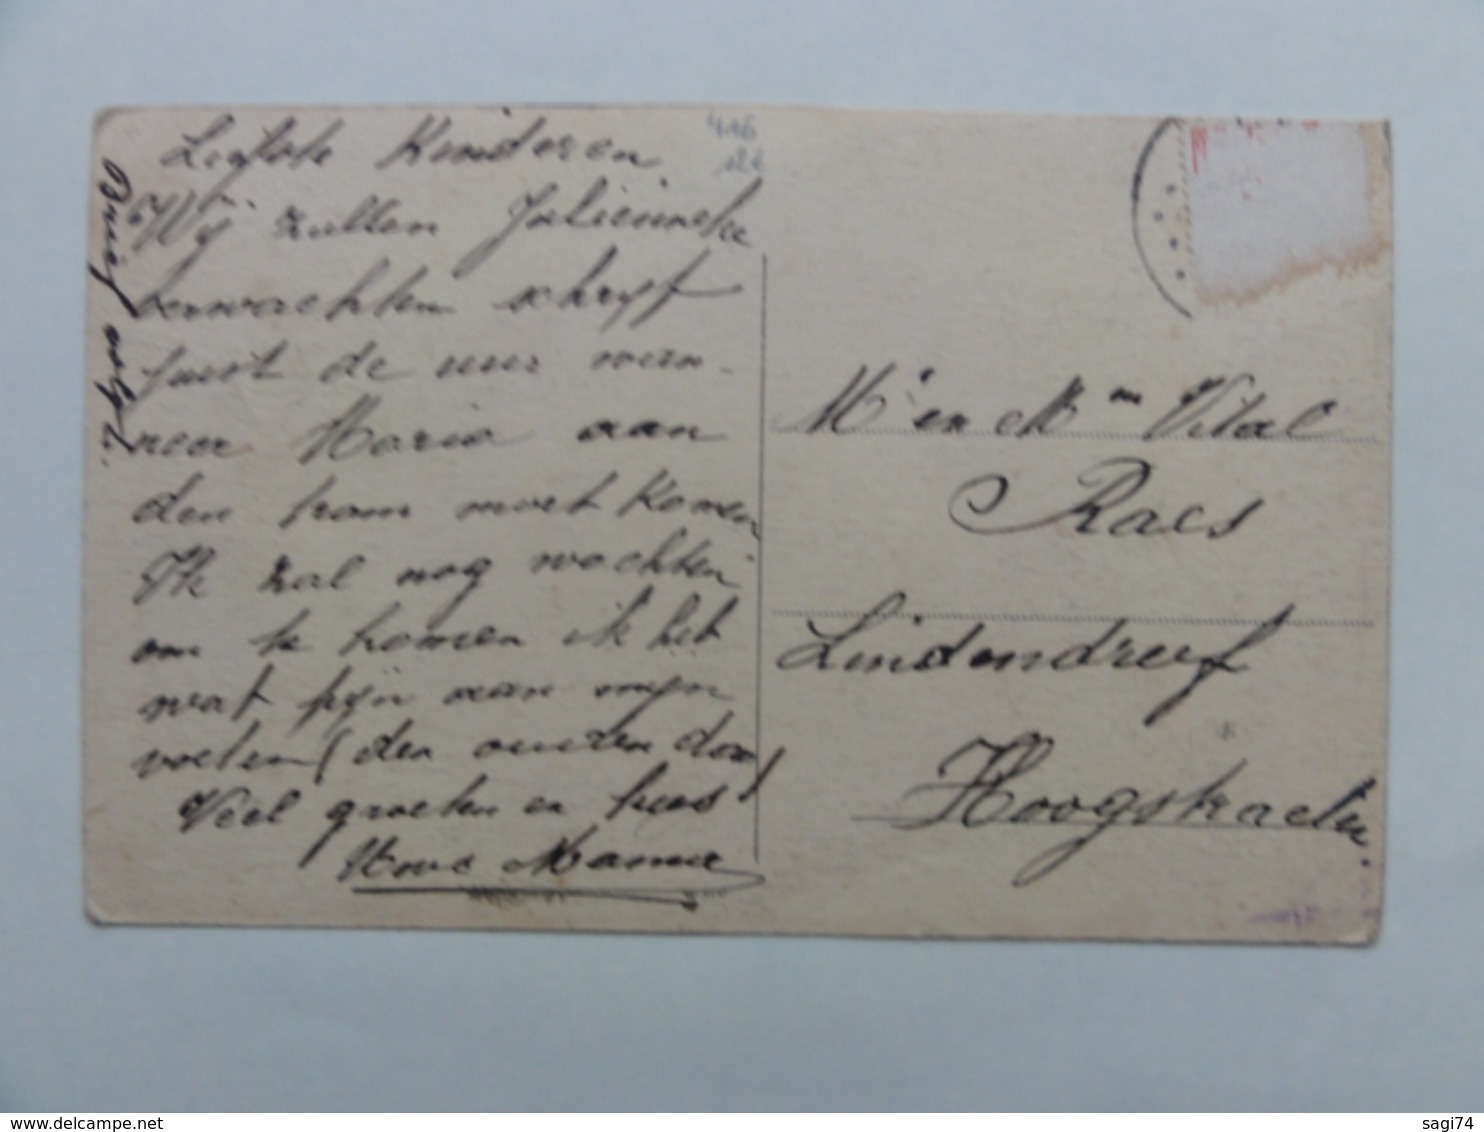 Liefste Kinderen
Wij zullen Julienneke
verwachten schryf
juist de uur wan-
neer Maria aan
den tram moet komen
Ik zal nog wachten
om te komen ik heb
wat pijn aan mijn
voeten (den ouden dom)
Veel groeten en kees
Uwe Mama
Brief volgt.
416
126
Mr en Mm Vital
Raes
Lindendreef
Hoogstraeten.
delcampe.net
sagi74